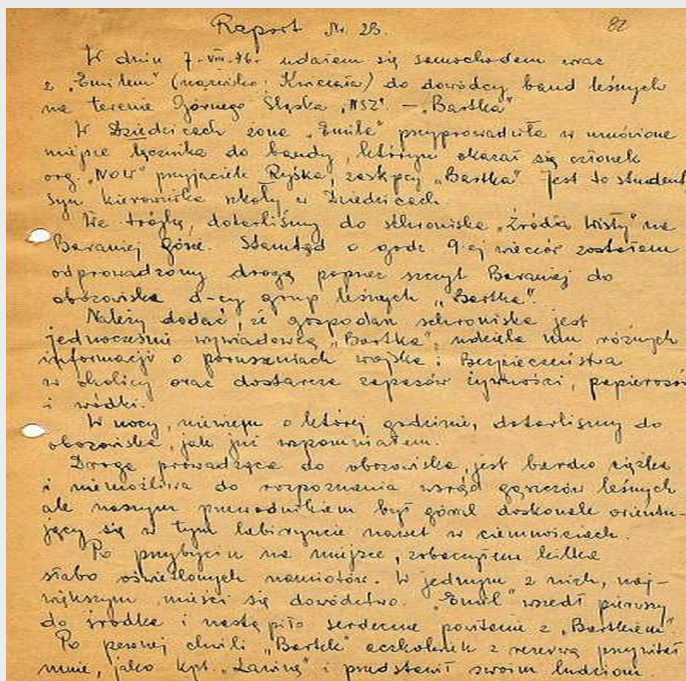 Raport Nr. 28.
82
W dniu 7-VIII-46. udałem się samochodem wraz
z „Emilem" (nazwisko: Kwiczala) do dowódcy band leśnych
na terenie Górnego Śląska „NSZ". – „Bartka"
W Dziedzicach żona „Emila" przyprowadziła w umówione
miejsce łącznika do bandy, którym okazał się członek
org. „NOW" przyjaciel Ryśka, zastępcy „Bartka". Jest to student
syn kierownika szkoły w Dziedzicach.
We trójkę, dotarliśmy do schroniska „Źródła Wisły" na
Baraniej Górze. Stamtąd o godz 9-ej wieczór zostałem
odprowadzony drogą poprzez szczyt Baraniej do
obozowiska d-cy grup leśnych „Bartka".
Należy dodać, że gospodarz schroniska jest
jednocześnie wywiadowcą „Bartka", udziela mu różnych
informacji o poruszeniach wojska i Bezpieczeństwa
w okolicy oraz dostarcza zapasów żywności, papierosów
i wódki.
W nocy, niewiem o której godzinie, dotarliśmy do
obozowiska, jak już wspomniałem.
Droga prowadząca do obozowiska, jest bardzo ciężka
i niemożliwa do rozpoznania wśród gąszczów leśnych
ale naszym przewodnikiem był góral doskonale orientu-
jący się w tym labiryncie nawet w ciemnościach.
Po przybyciu na miejsce, zobaczyłem kilka
słabo oświetlonych namiotów. W jednym z nich, naj-
większym mieści się dowództwo. „Emil" wszedł pierwszy
do środka i nastąpiło serdeczne powitanie z „Bartkiem".
Po pewnej chwili „Bartek" aczkolwiek z rezerwą przywitał
mnie, jako kpt. „Lawinę" i przedstawił swoim ludziom.